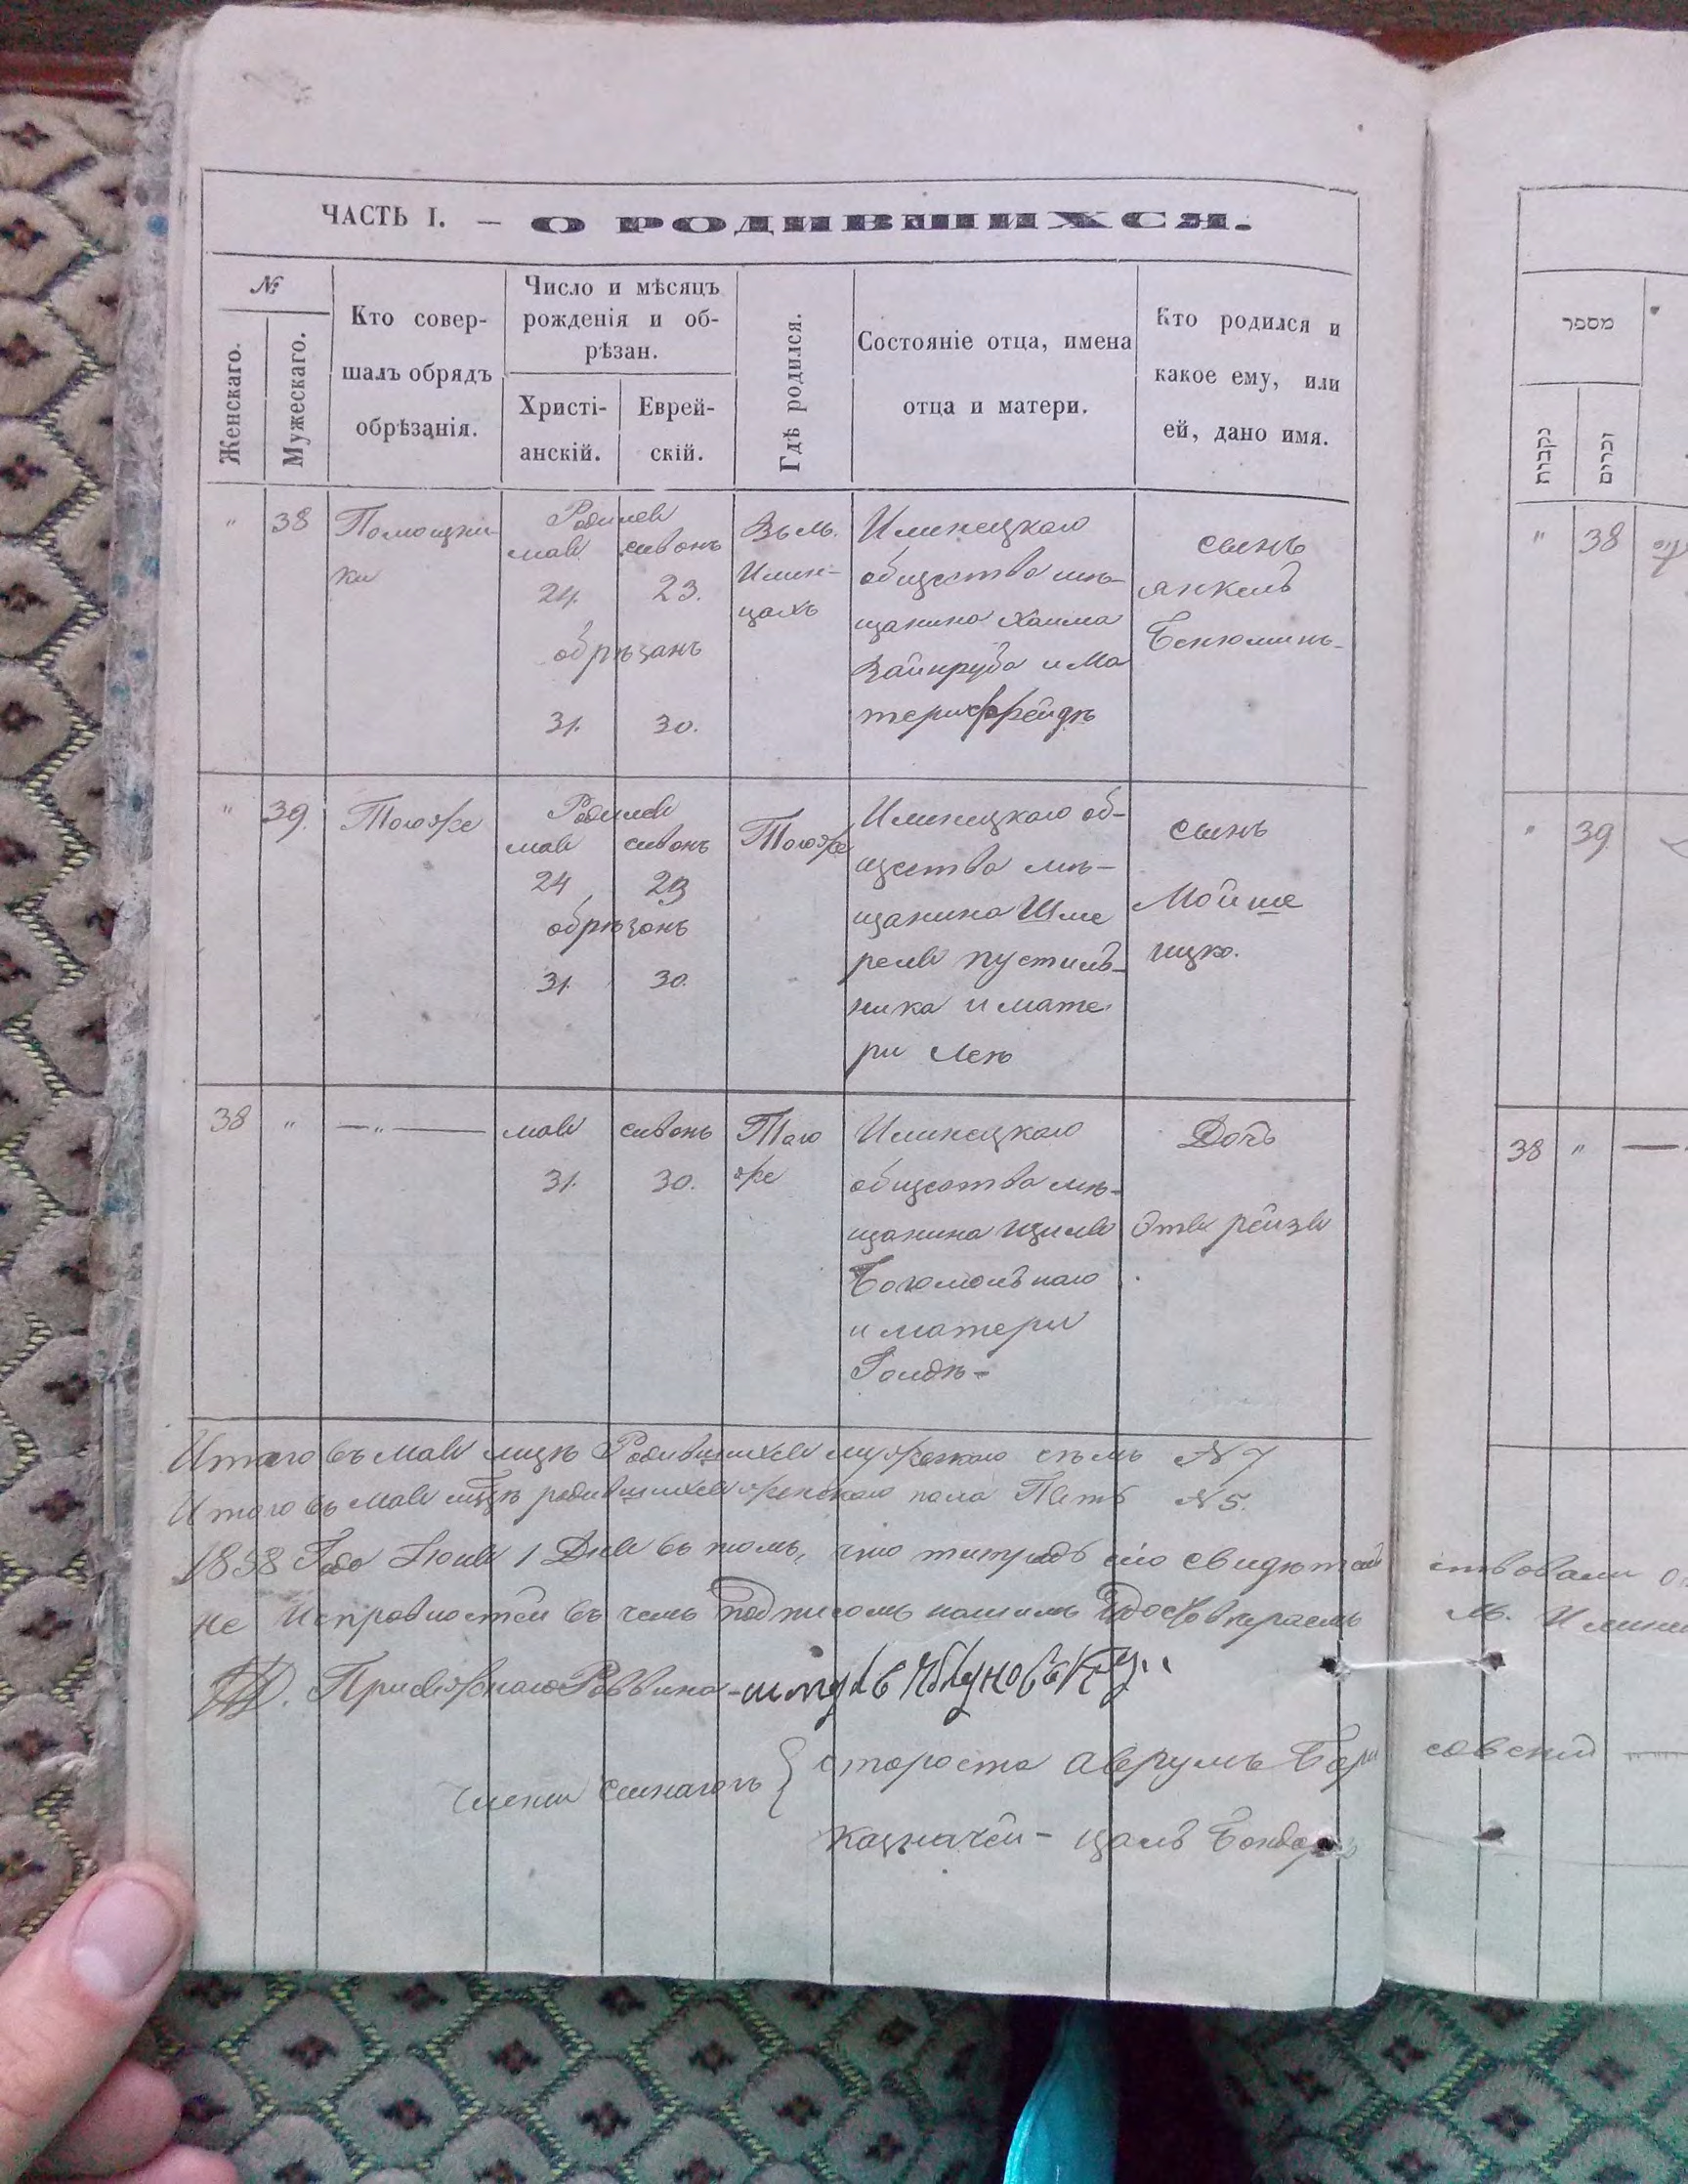 ЧАСТЬ I. — О РОДИВШИХСЯ.
№
Женскаго.
Мужескаго.
Кто совер-
шалъ обрядъ
обрѣзанія.
Число и мѣсяцъ
рожденія и об-
рѣзан.
Христі-
анскій.
Еврей-
скій.
Гдѣ родился.
Состояніе отца, имена
отца и матери.
Кто родился и
какое ему, или
ей, дано имя.
" 38
Помощни-
ки
Родился
мая сивонъ
24. 23.
обрѣзанъ
31. 30.
Въ м.
Илин-
цахъ
Илинецкаго
общества мѣ-
щанина Хаима
Вайнруба и Ма
тери Фрейдѣ
сынъ
янкель
Бенюминъ
" 39.
Тогоже
Родился
мая сивонъ
24 23
обрѣзонъ
31. 30.
Тогоже
Илинецкаго об-
щества мѣ-
щанина Шме
реля пустиль-
ника и мате
ри Леѣ
сынъ
Мойше
ицко.
38 " —"—
мая сивонъ
31. 30.
Того
же
Илинецкаго
общества мѣ-
щанина
Богомольнаго
и матери
Голдѣ-
Дочь
Этя рейзя
Итого въ мая мцѣ Родившихся мужескаго семь № 7
Итого въ мая мцѣ родившихся женскаго пола Пять № 5.
1858 Года Июня 1 Дня въ томъ, что тетрадь сию свидѣтель
не исправностей въ чемъ подписомъ нашимъ удостовѣраемъ
Присяжнаго Раввина-
члени синагогъ
староста Аврумъ Бори
казначей - цаль Бондарь
מספר
נקבות
זכרים
" 38
" 39
38 " —
ствовали
м. Илин
совский